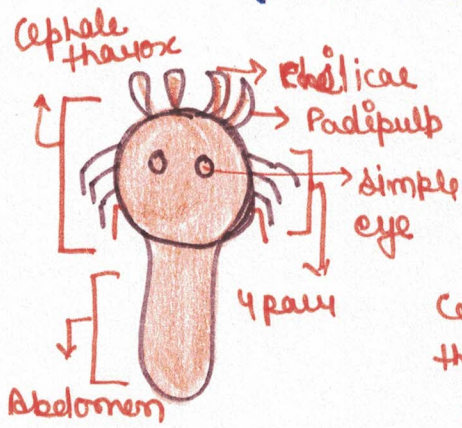 Cephale
thavox
Chilicae
Padipulp
simple
eye
4 pair
Abdomen